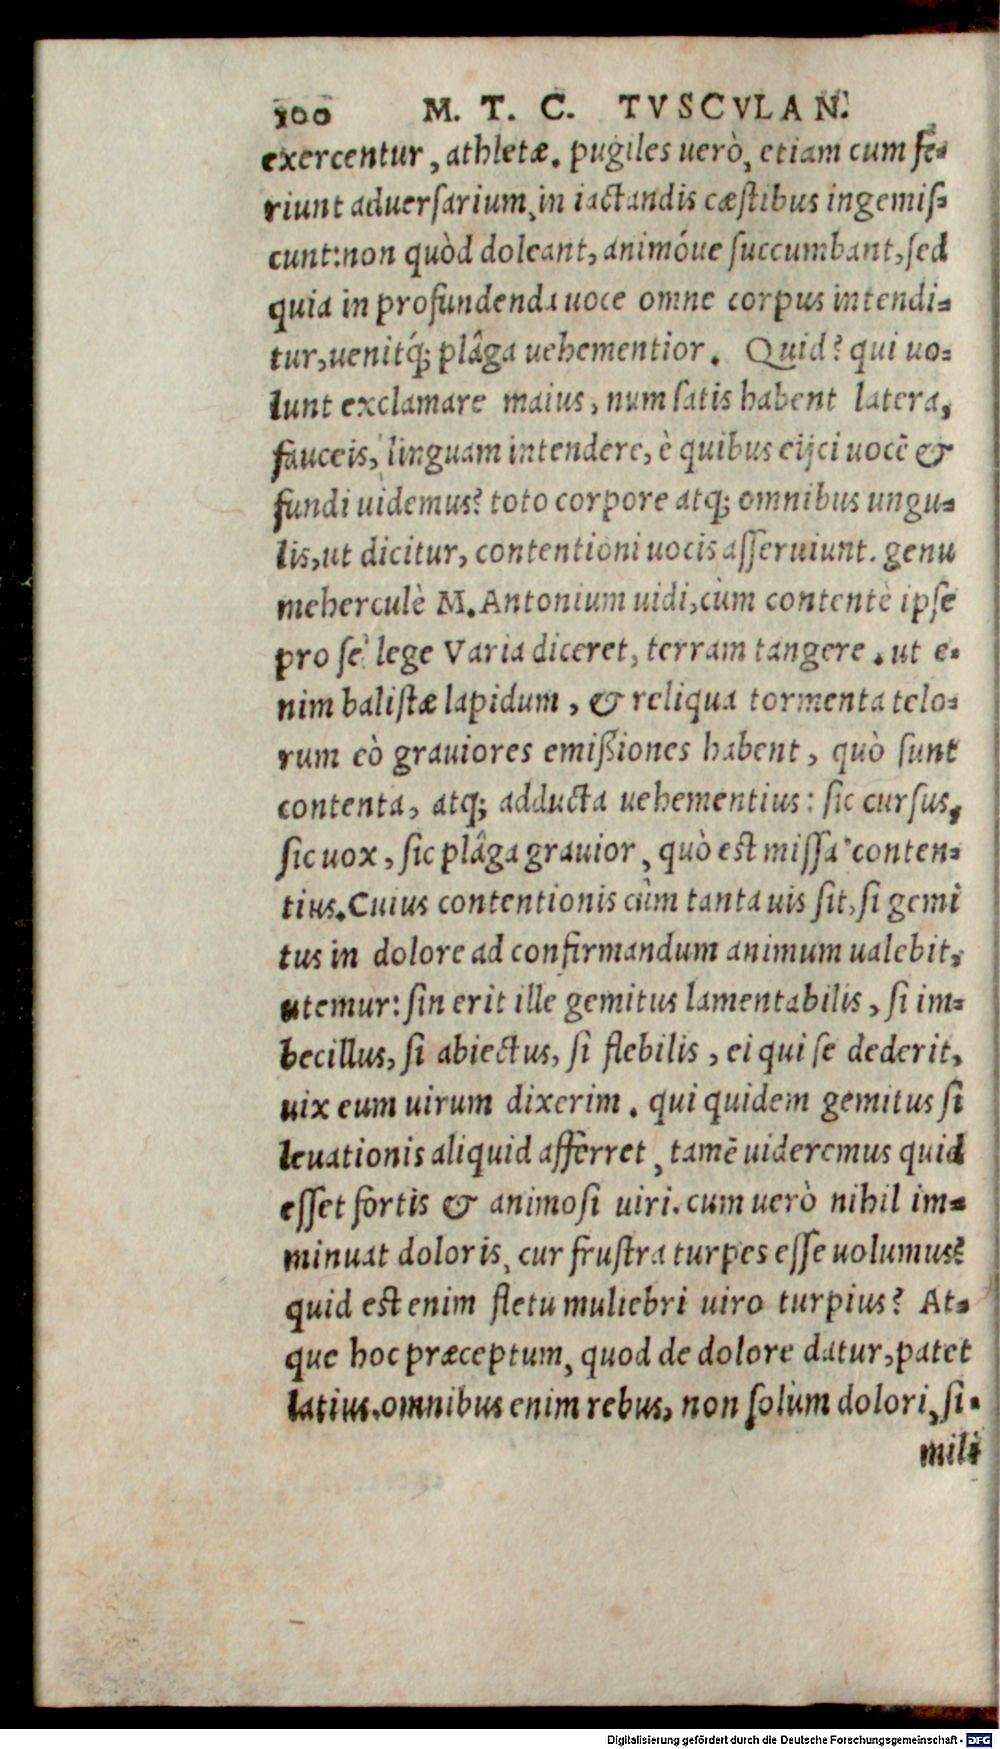 100 M. T. C. TVSCVLAN.
exercentur, athletæ. pugiles uerò, etiam cum fe-
riunt aduersarium, in iactandis cæstibus ingemis-
cunt: non quòd doleant, animóue succumbant, sed
quia in profundenda uoce omne corpus intendi-
tur, uenitq́; plâga uehementior. Quid? qui uo-
lunt exclamare maius, num satis habent latera,
fauceis, linguam intendere, è quibus eijci uocē &
fundi uidemus? toto corpore atq; omnibus ungu-
lis, ut dicitur, contentioni uocis asseruiunt. genu
meherculè M. Antonium uidi, cùm contentè ipse
pro se lege Varia diceret, terram tangere. ut e-
nim balistæ lapidum, & reliqua tormenta telo-
rum eò grauiores emißiones habent, quò sunt
contenta, atq; adducta uehementius: sic cursus,
sic uox, sic plâga grauior, quò est missa conten-
tius. Cuius contentionis cùm tanta uis sit, si gemi
tus in dolore ad confirmandum animum ualebit,
utemur: sin erit ille gemitus lamentabilis, si im-
becillus, si abiectus, si flebilis, ei qui se dederit,
uix eum uirum dixerim. qui quidem gemitus si
leuationis aliquid afferret, tamē uideremus quid
esset fortis & animosi uiri. cum uerò nihil im-
minuat doloris, cur frustra turpes esse uolumus?
quid est enim fletu muliebri uiro turpius? At-
que hoc præceptum, quod de dolore datur, patet
latius. omnibus enim rebus, non solùm dolori, si-
mili
Digitalisierung gefördert durch die Deutsche Forschungsgemeinschaft - DFG